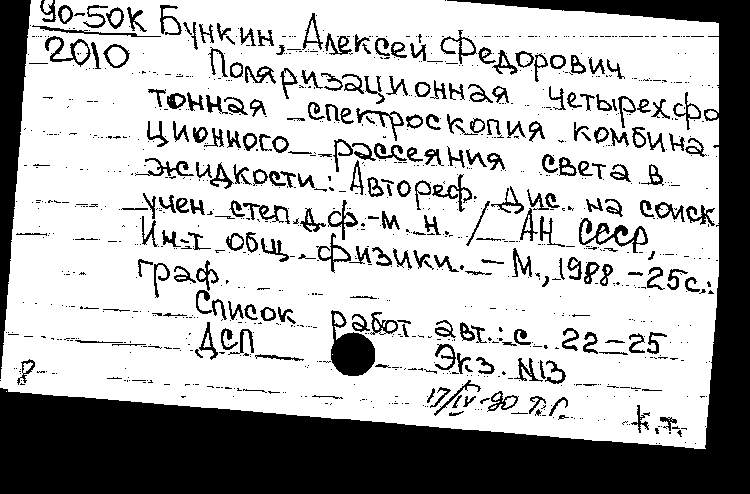 90-50К Бункин, Алексей Федорович
2010
Поляризационная четырехфо
тонная спектроскопия комбина-
ционного рассеяния света в
жидкости: Автореф. дис. на соиск.
учен. степ. д.ф.-м. н. / АН СССР,
Ин-т общ. физики. – М., 1988. – 25с.:
граф.
Список работ авт.: с. 22–25
ДСП Экз. N13
8 17/IV-90
К.Т.